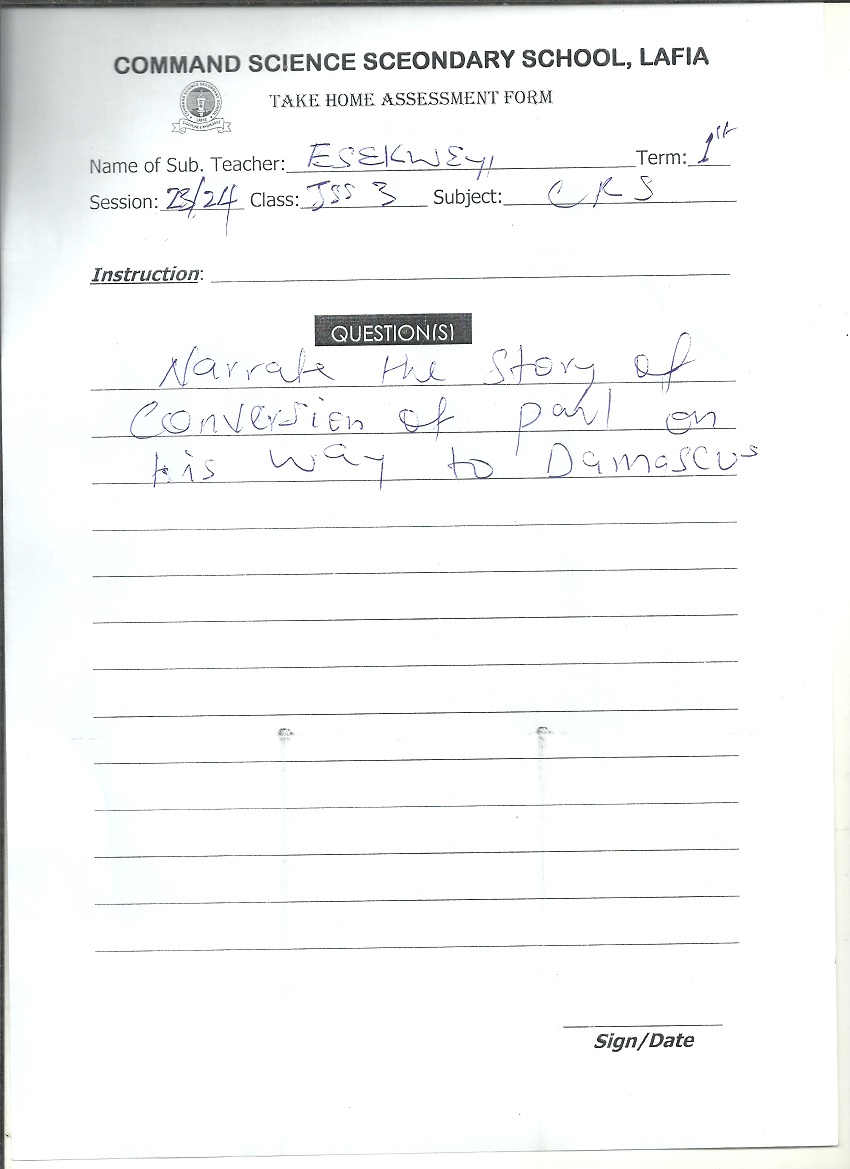 COMMAND SCIENCE SCEONDARY SCHOOL, LAFIA
TAKE HOME ASSESSMENT FORM
Name of Sub. Teacher: ESEKWEYI Term: 1st
Session: 23/24 Class: JSS 3 Subject: CRS
Instruction:
QUESTION(S)
Narrate the Story of
Conversion of paul on
his way to Damascus
Sign/Date